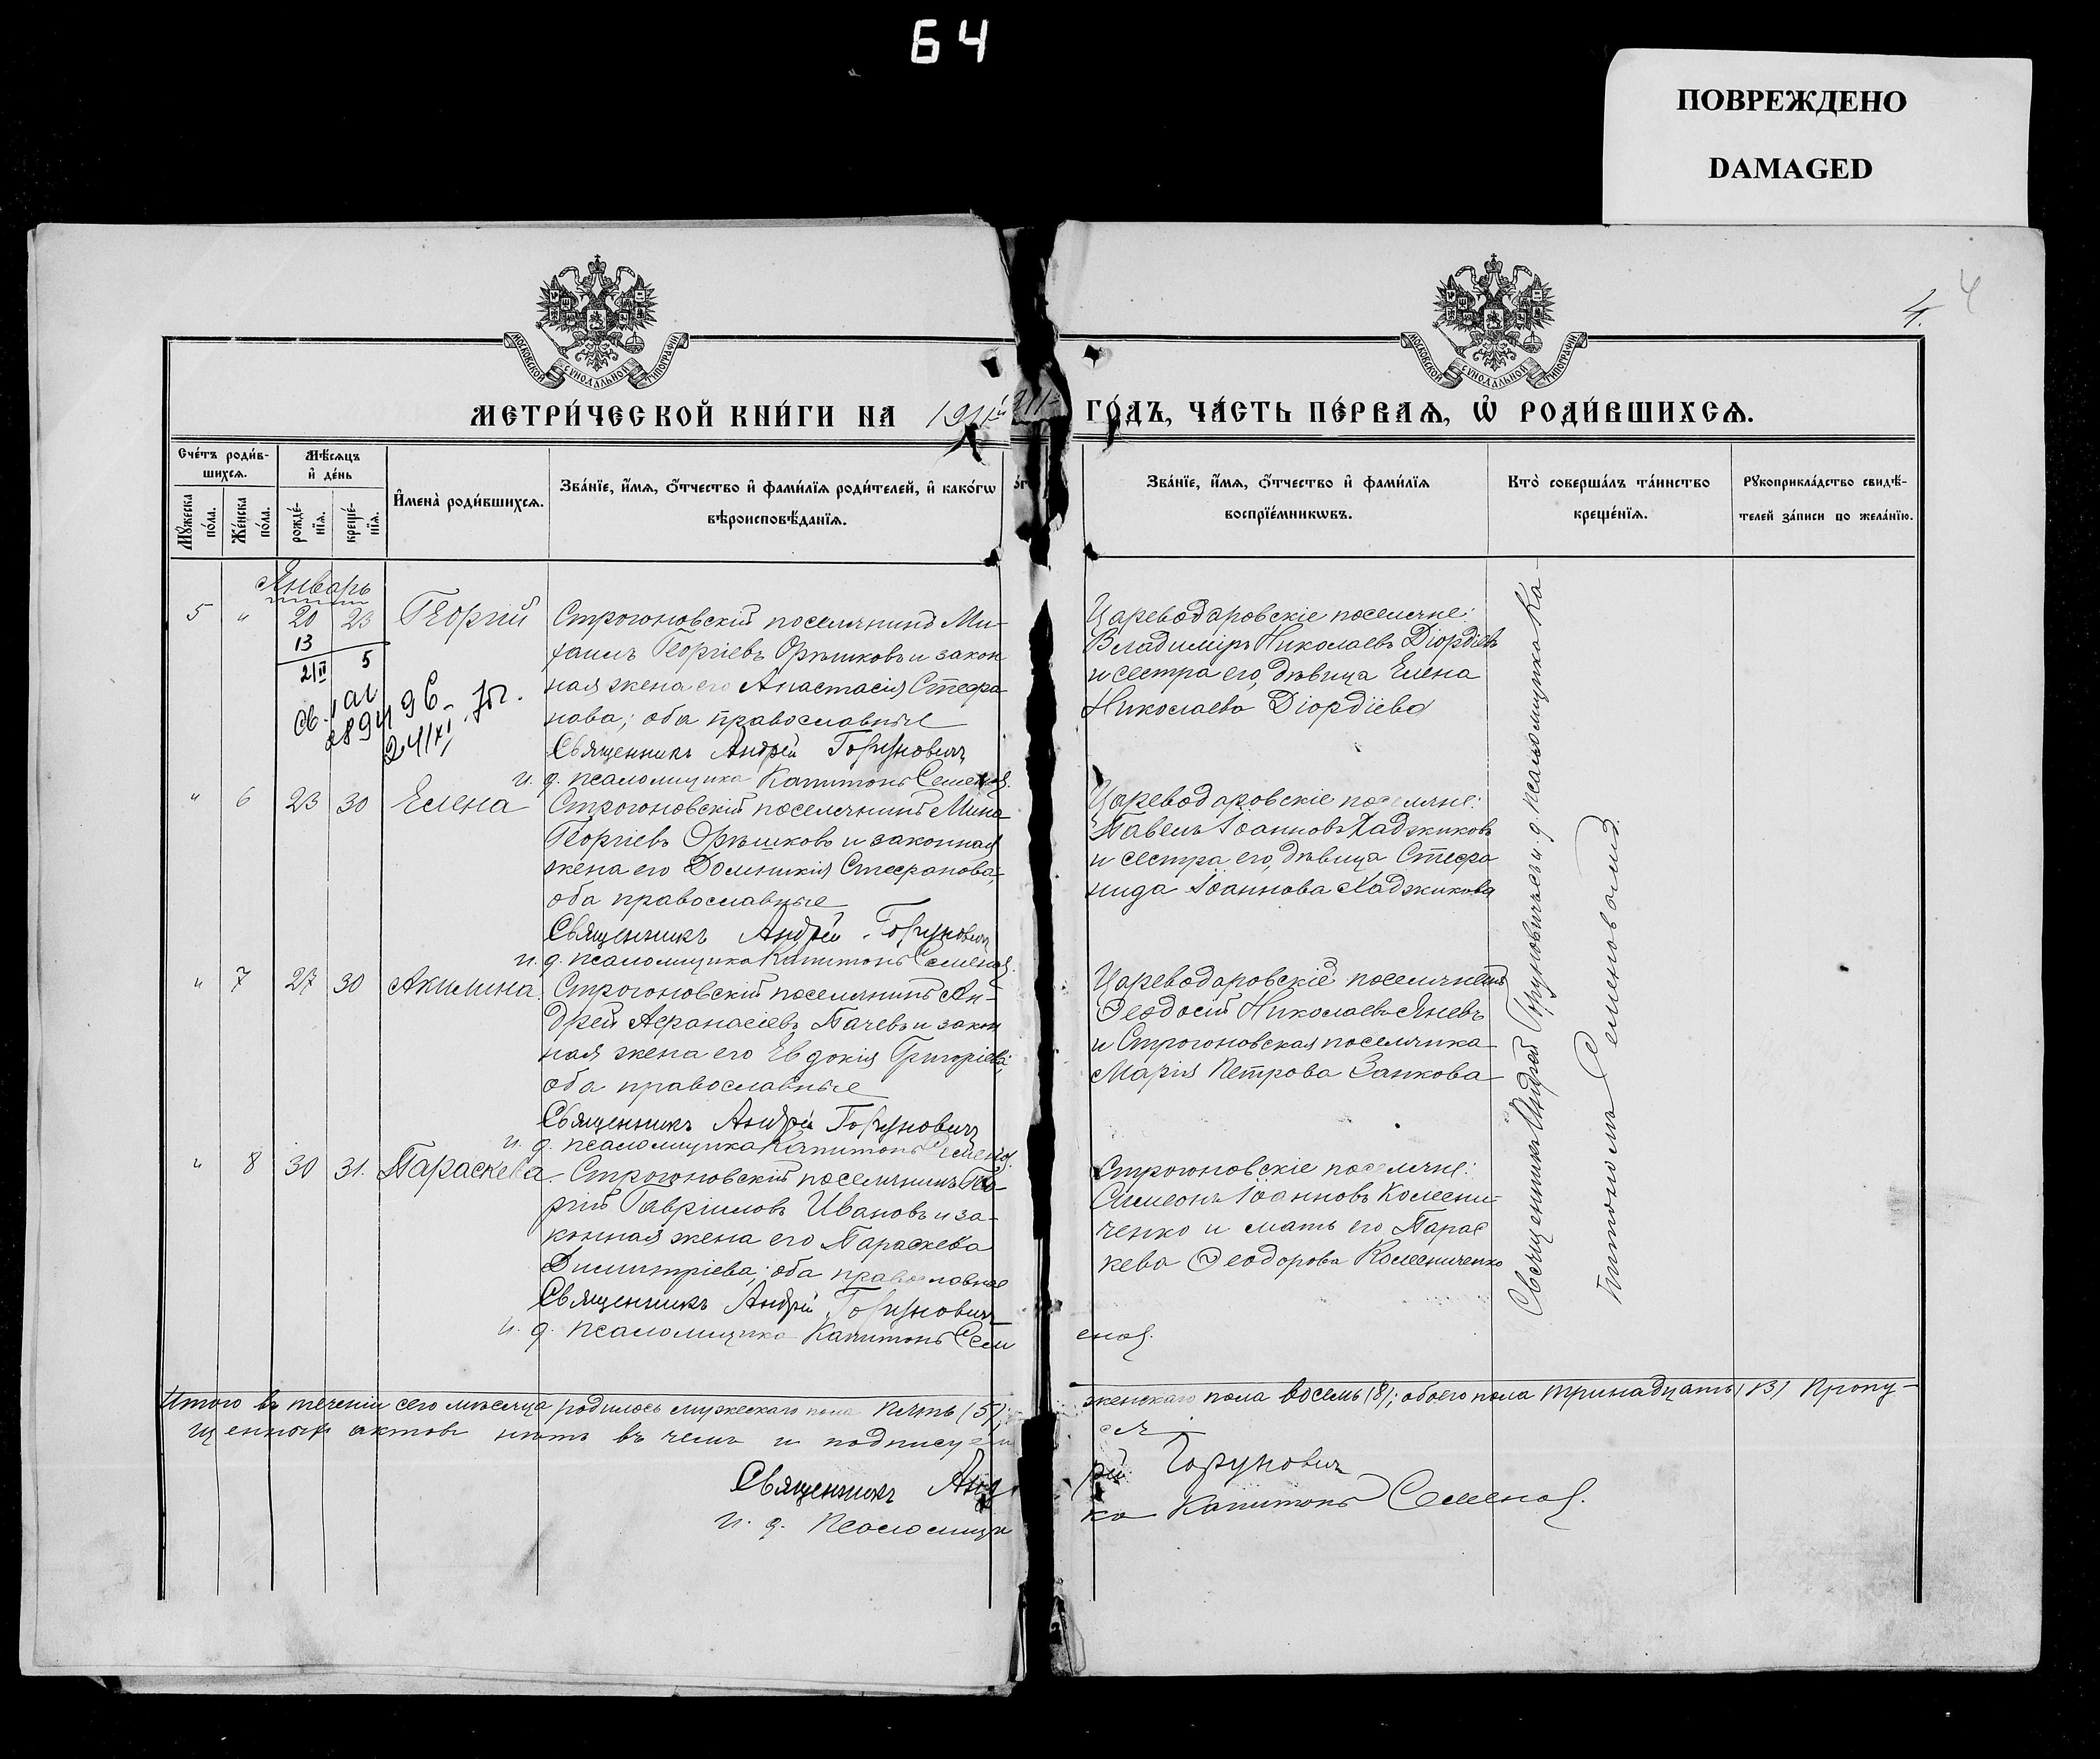 64
ПОВРЕЖДЕНО
DAMAGED
4
4.
МОСКОВСКОЙ СѴНОДАЛЬНОЙ ТИПОГРАФІИ
МОСКОВСКОЙ СѴНОДАЛЬНОЙ ТИПОГРАФІИ
МЕТРИ́ЧЕСКОЙ КНИ́ГИ НА 1911й ГО́ДЪ, ЧА́СТЬ ПЕ́РВАѦ, Ѡ҆ РОДИ́ВШИХСѦ.
Сче́тъ роди́в-
шихсѧ.
Мꙋ́жеска по́ла.
Же́нска по́ла.
Мѣ́сѧцъ
и҆ де́нь
рожде́-
нїѧ.
креще́-
нїѧ.
И҆мена̀ роди́вшихсѧ.
Зва́нїе, и҆́мѧ, ѻ҆́тчество и҆ фами́лїѧ роди́телей, и҆ како́гѡ
вѣроисповѣ́данїѧ.
Зва́нїе, и҆́мѧ, ѻ҆́тчество и҆ фами́лїѧ
воспрїе́мникѡвъ.
Кто̀ соверша́лъ та́инство
креще́нїѧ.
Рꙋкоприкла́дство свидѣ́-
телей за́писи по жела́нїю.
Январь
5 " 20 23 Георгій
13
2/II 5
Строгоновскій поселянинъ Ми-
хаилъ Георгіевъ Орѣшковъ и закон
ная жена его Анастасія Стефа
нова; оба православные
Священникъ Андрей Горунович
и. д. псаломщика Капитонъ Семенов.
Цареводаровскіе поселяне:
Владиміръ Николаевъ Діордіевъ
и сестра его, дѣвица Елена
Николаева Діордіева
" 6 23 30 Елена
Строгоновскій поселянинъ Мина
Георгіевъ Орѣшковъ и законная
жена его Домникія Стефанова,
оба православные
Священникъ Андрей Горунович
и. д. псаломщика Капитонъ Семенов.
Цареводаровскіе поселяне:
Павелъ Іоанновъ Хаджиковъ
и сестра его, дѣвица Стефа
нида Іоаннова Хаджикова
" 7 27 30 Акилина.
Строгоновскій поселянинъ Ан-
дрей Афанасіевъ Пачевъ и закон
ная жена его Евдокія Григоріева;
оба православные
Священникъ Андрей Горунович
и. д. псаломщика Капитонъ Семенов.
Цареводаровскіе поселянинъ
Ѳеодосій Николаевъ Яневъ
и Строгоновская поселянка
Марія Петрова Занкова
" 8 30 31. Параскева.
Строгоновскій поселянинъ Гео-
ргій Гавріиловъ Ивановъ и за-
конная жена его Параскева
Димитріева; оба православные
Священникъ Андрей Горунович
и. д. псаломщика Капитонъ Семенов.
Строгоновскіе поселяне:
Симеонъ Іоанновъ Колесни-
ченко и мать его Парас
кева Ѳеодорова Колесниченко
Священникъ Андрей Горуновичъ и. д. псаломщика Ка-
питонъ Семеновъ
Итого въ теченіи сего мѣсяца родилось мужескаго пола пять (5); женскаго пола восемь (8); обоего пола тринадцать (13) Пропу-
щенных актовъ нѣтъ въ чемъ и подписуемся
Священникъ Андрей Горунович
и. д. Псаломщика Капитонъ Семенов.